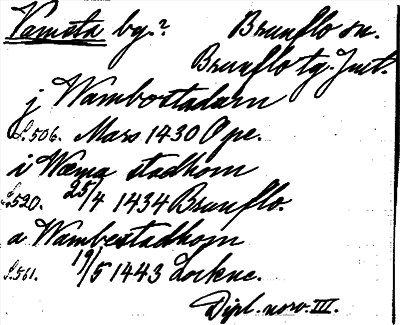 Vamsta by.? Brunflo sn.
Brunflo tg. Jmtl.
j Wambostadum
S.506. Mars 1430 Ope.
i Wæma stadhom
S.520. 25/4 1434 Brunflo.
a Wambestadhom
S.561. 19/5 1443 Lockne.
Dipl. norv. III.